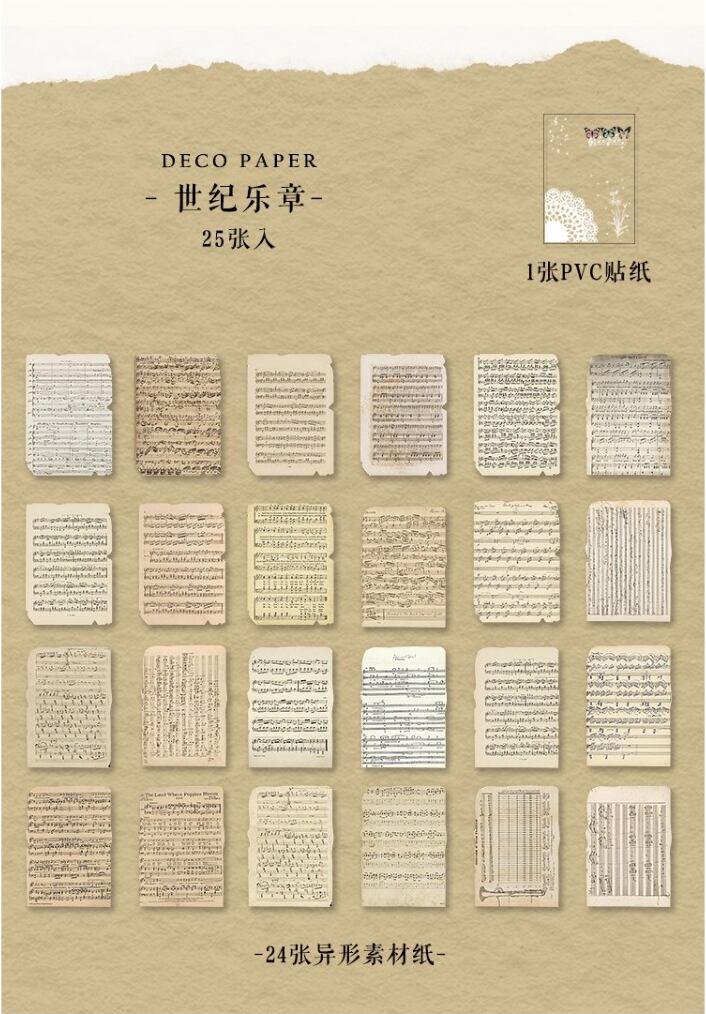 DECO PAPER
- 世纪乐章-
25张入
1张PVC贴纸
The Land Where Poppies Bloom
-24张异形素材纸-